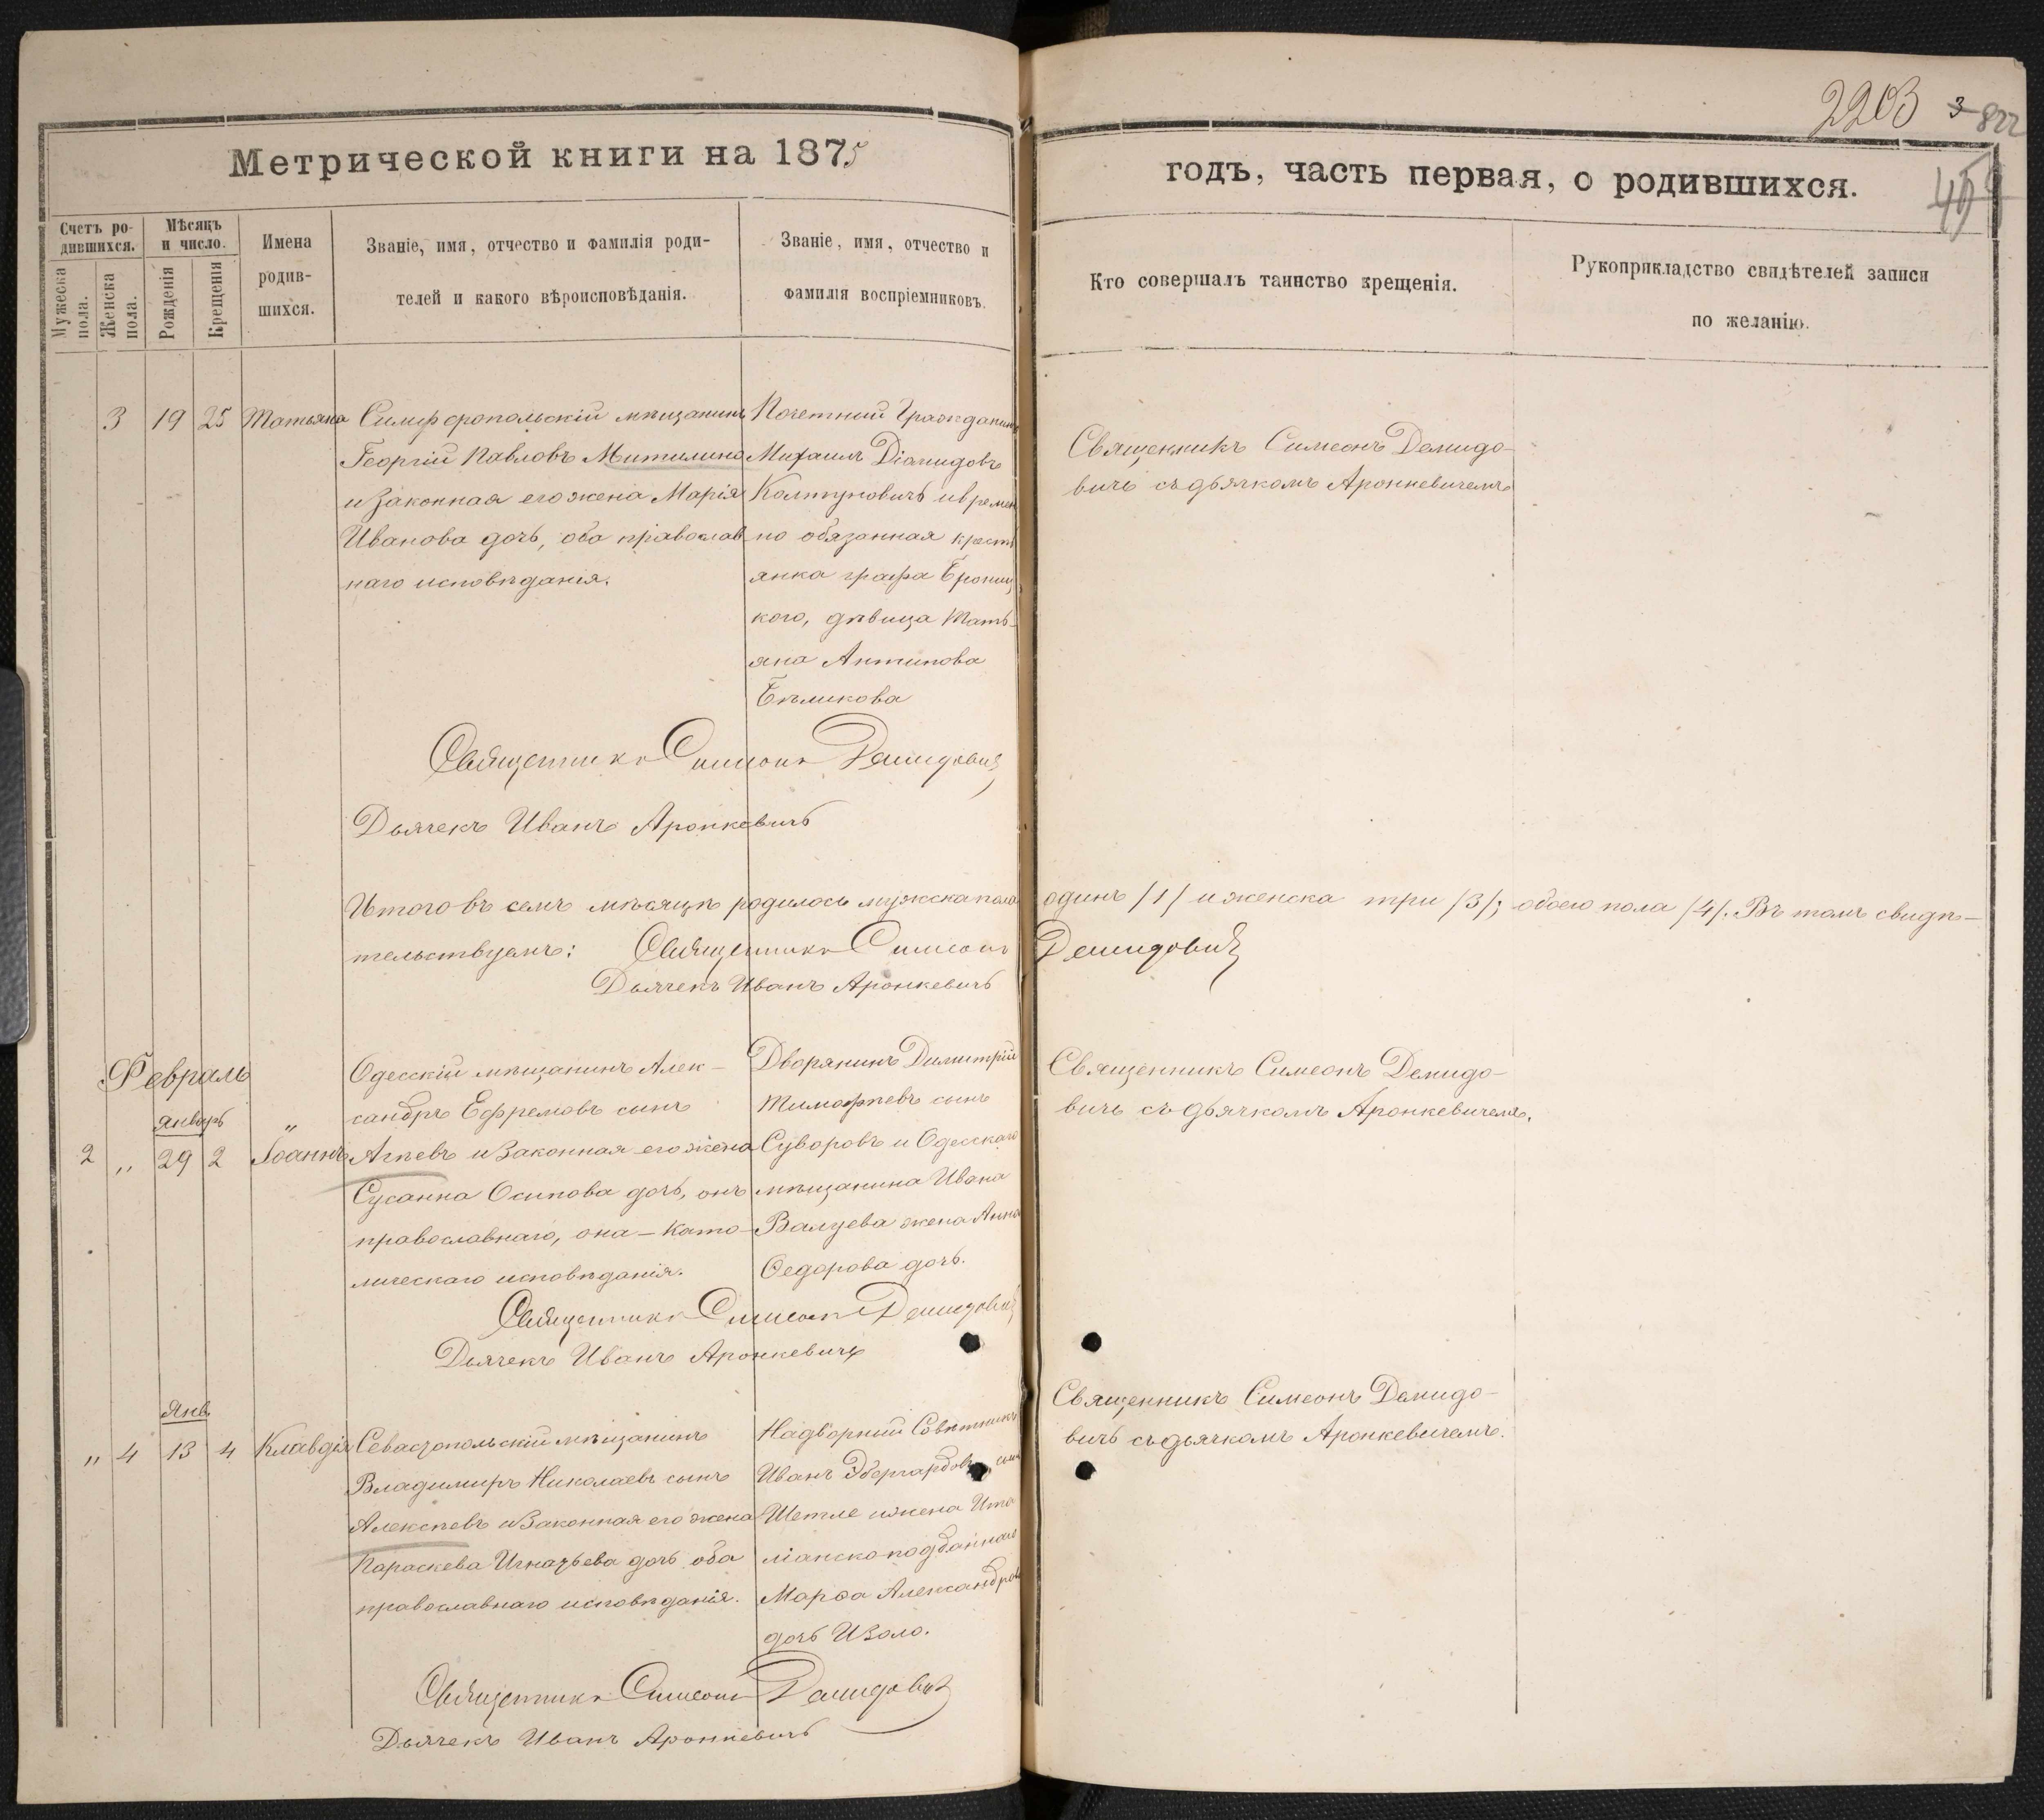 2203 3 822
Метрической книги на 1875
годъ, часть первая, о родившихся.
45
Счетъ ро-
дившихся.
Мужеска
пола.
Женска
пола.
Мѣсяцъ
и число.
Рожденія
Крещенія
Имена
родив-
шихся.
Званіе, имя, отчество и фамилія роди-
телей и какого вѣроисповѣданія.
Званіе, имя, отчество и
фамилія воспріемниковъ.
Кто совершалъ таинство крещенія.
Рукоприкладство свидѣтелей записи
по желанію.
3 19 25 Татьяна
Симферопольскій мѣщанинъ
Георгій Павловъ Митилино
и законная его жена Марія
Иванова дочь, оба православ
наго исповѣданія.
Почетный Гражданинъ
Михаилъ Діамидовъ
Колтуновичъ и времен
но обязанная кресть
янка графа Брониц
кого, дѣвица Тать-
яна Антипова
Бѣликова
Священникъ Симеонъ Демидо-
вичъ съ дьячкомъ Аронкевичемъ
Священникъ Симеонъ Демидовичъ
Дьячекъ Иванъ Аронкевичъ
Итого въ семъ мѣсяцѣ родилось мужска пола одинъ /1/ и женска три /3/; обоего пола /4/. Въ томъ свидѣ-
тельствуемъ: Священникъ Симеонъ Демидовичъ
Дьячекъ Иванъ Аронкевичъ
Февраль
январь
2 „ 29 2 Іоаннъ
Одесскій мѣщанинъ Алек-
сандръ Ефремовъ сынъ
Агѣевъ и законная его жена
Сусанна Осипова дочь, онъ
православнаго, она - Като-
лическаго исповѣданія.
Дворянинъ Димитрій
Тимофѣевъ сынъ
Суворовъ и Одесскаго
мѣщанина Ивана
Валуева жена Анна
Ѳедорова дочь.
Священникъ Симеонъ Демидо-
вичъ съ дьячкомъ Аронкевичемъ.
Священникъ Симеонъ Демидовичъ
Дьячекъ Иванъ Аронкевичъ
Янв.
„ 4 13 4 Клавдія
Севастопольскій мѣщанинъ
Владимиръ Николаевъ сынъ
Алексѣевъ и законная его жена
Параскева Игнатьева дочь оба
православнаго исповѣданія.
Надворный Совѣтникъ
Иванъ Эбергардовъ сынъ
Шетле и жена Ита
ліанскоподданнаго
Марѳа Александров
дочь Изоло.
Священникъ Симеонъ Демидо-
вичъ съ дьячкомъ Аронкевичемъ.
Священникъ Симеонъ Демидовичъ
Дьячекъ Иванъ Аронкевичъ